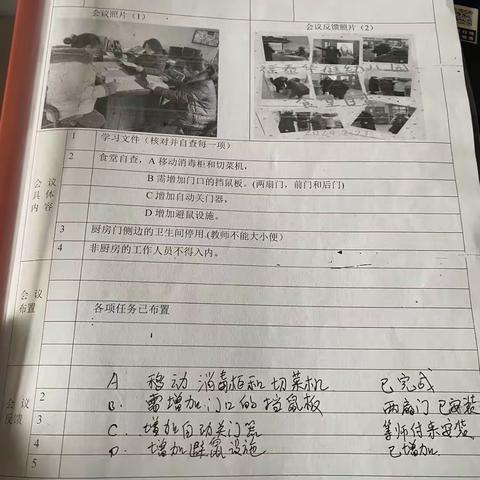 会议照片（1） 会议反馈照片（2）
2024.2.21
1 学习文件（核对并自查每一项）
2 食堂自查，A 移动消毒柜和切菜机，
B 需增加门口的挡鼠板。（两扇门，前门和后门）
C 增加自动关门器，
D 增加避鼠设施。
会议具体内容
3 厨房门侧边的卫生间停用.(教师不能大小便）
4 非厨房的工作人员不得入内。
会议布置
各项任务已布置
会议反馈
A 移动 消毒柜和 切菜机 已完成
2 B. 需增加门口的挡鼠板 两扇门 已安装
3 C. 增加自动关门器 等师付来安装
4 D. 增加避鼠设施 已增加
5